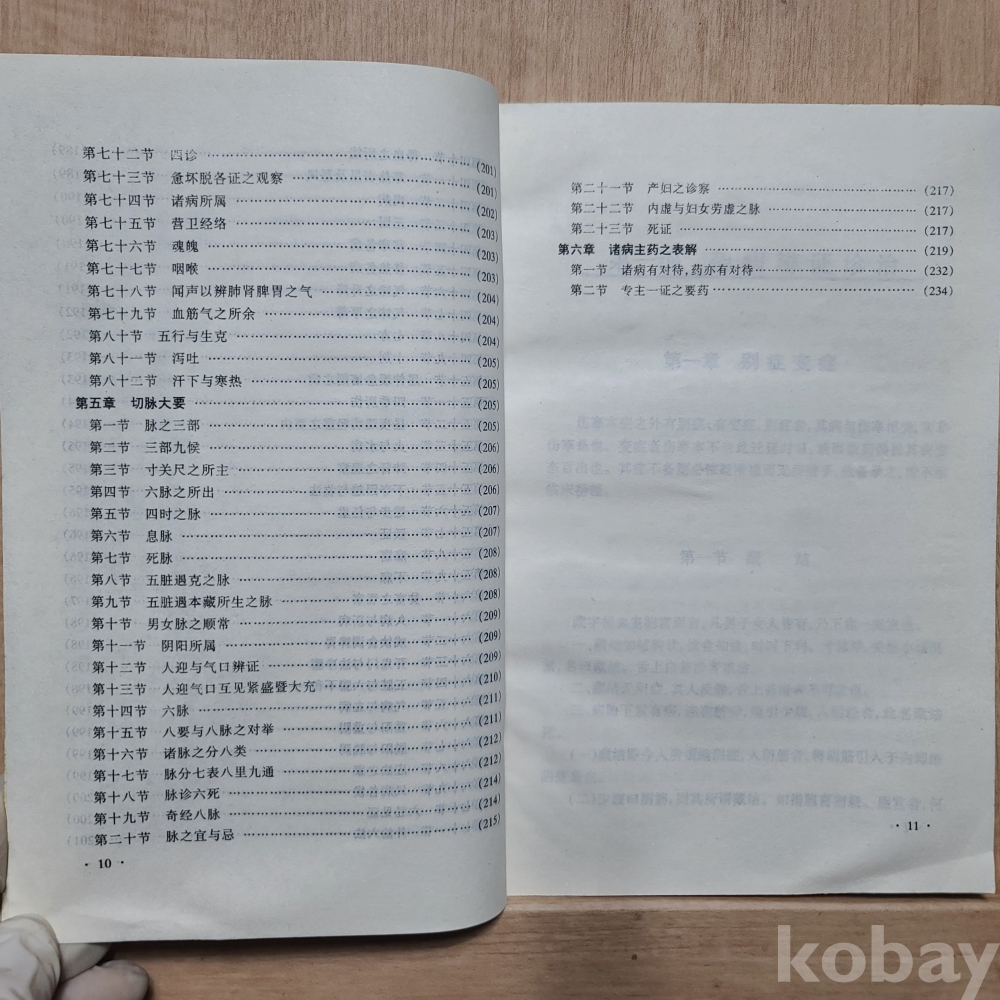 第七十二节 四诊 …… (201)
第七十三节 急坏脱各证之观察 …… (201)
第七十四节 诸病所属 …… (202)
第七十五节 营卫经络 …… (203)
第七十六节 魂魄 …… (203)
第七十七节 咽喉 …… (203)
第七十八节 闻声以辨肺肾脾胃之气 …… (204)
第七十九节 血筋气之所余 …… (204)
第八十节 五行与生克 …… (204)
第八十一节 泻吐 …… (205)
第八十二节 汗下与寒热 …… (205)
第五章 切脉大要 …… (205)
第一节 脉之三部 …… (205)
第二节 三部九候 …… (206)
第三节 寸关尺之所主 …… (206)
第四节 六脉之所出 …… (206)
第五节 四时之脉 …… (207)
第六节 息脉 …… (207)
第七节 死脉 …… (208)
第八节 五脏遇克之脉 …… (208)
第九节 五脏遇本藏所生之脉 …… (208)
第十节 男女脉之顺常 …… (209)
第十一节 阴阳所属 …… (209)
第十二节 人迎与气口辨证 …… (209)
第十三节 人迎气口互见紧盛暨大充 …… (210)
第十四节 六脉 …… (211)
第十五节 八要与八脉之对举 …… (211)
第十六节 诸脉之分八类 …… (212)
第十七节 脉分七表八里九通 …… (212)
第十八节 脉诊六死 …… (214)
第十九节 奇经八脉 …… (214)
第二十节 脉之宜与忌 …… (215)
· 10 ·
第二十一节 产妇之诊察 …… (217)
第二十二节 内虚与妇女劳虚之脉 …… (217)
第二十三节 死证 …… (217)
第六章 诸病主药之表解 …… (219)
第一节 诸病有对待,药亦有对待 …… (232)
第二节 专主一证之要药 …… (234)
· 11 ·
kobay